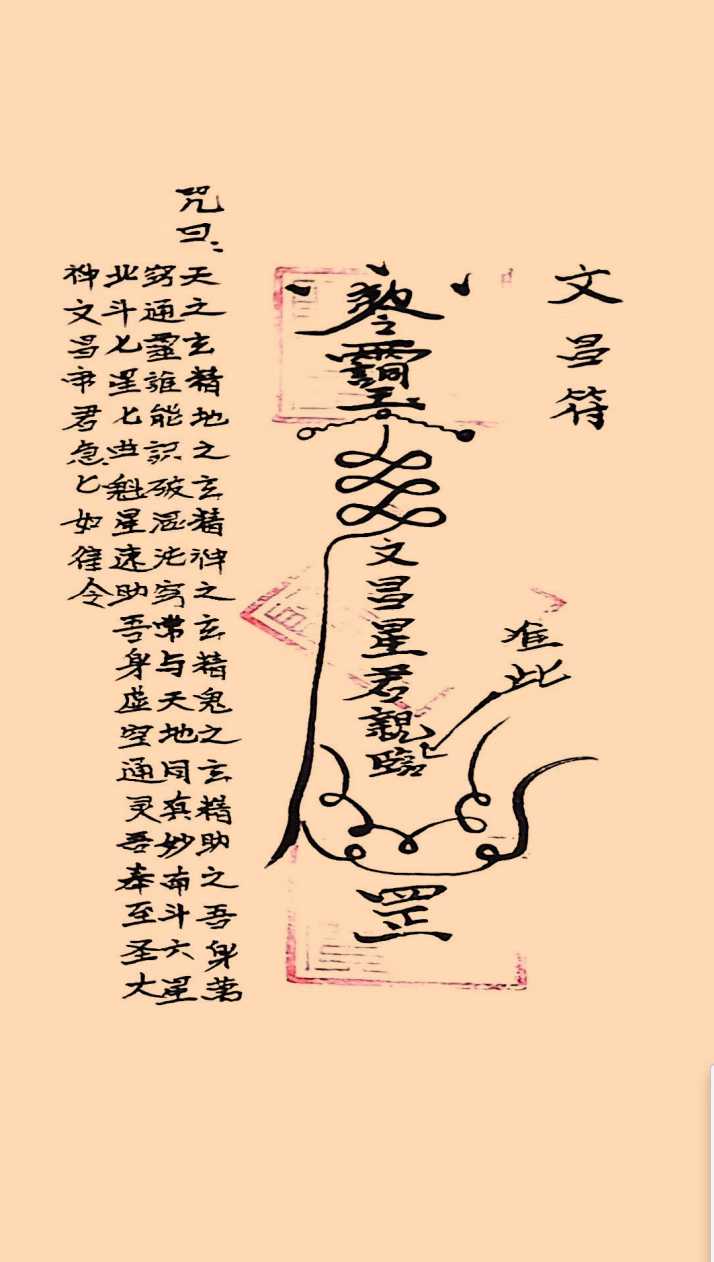 文昌符
准此
文昌星君親臨
罡
咒曰：
天之玄精地之玄精神之玄精鬼之玄精助之吾身萬
窍通靈誰能識破混沌窍常与天地同真妙南斗六星
北斗七星七曲魁星速助吾身虚空通灵吾奉至圣大
神文昌帝君急匕如律令